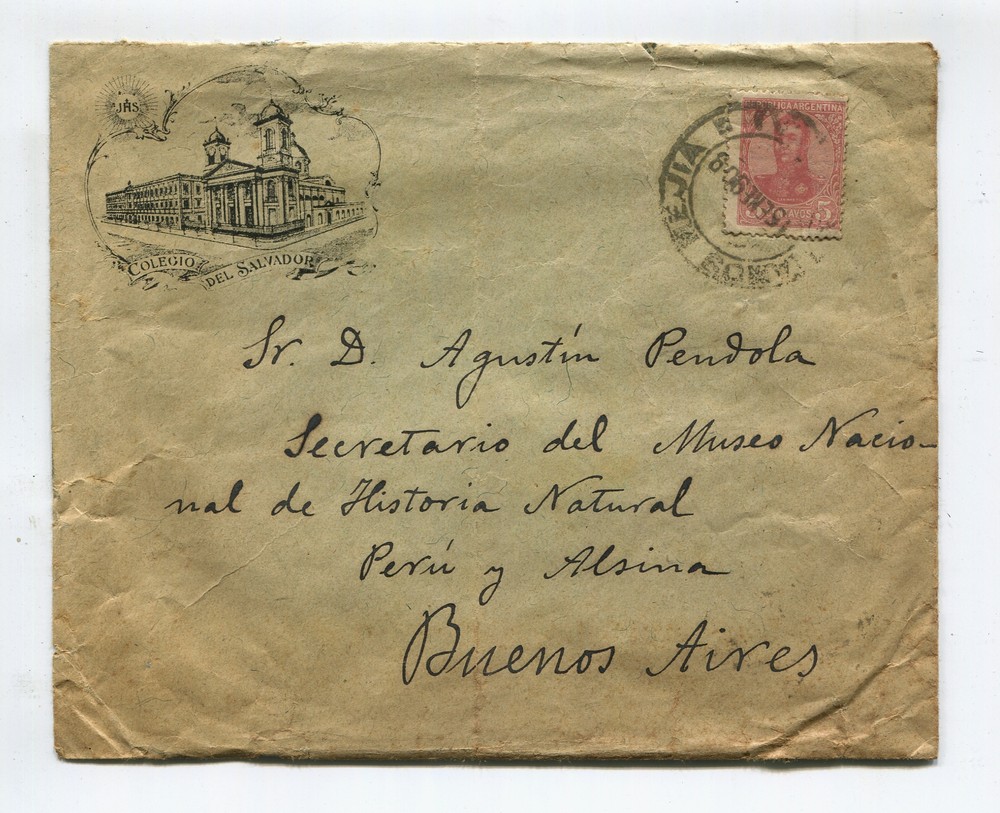 JHS
COLEGIO
DEL SALVADOR
REPUBLICA ARGENTINA
5
Sr. D. Agustín Pendola
Secretario del Museo Nacio-
nal de Historia Natural
Perú y Alsina
Buenos Aires